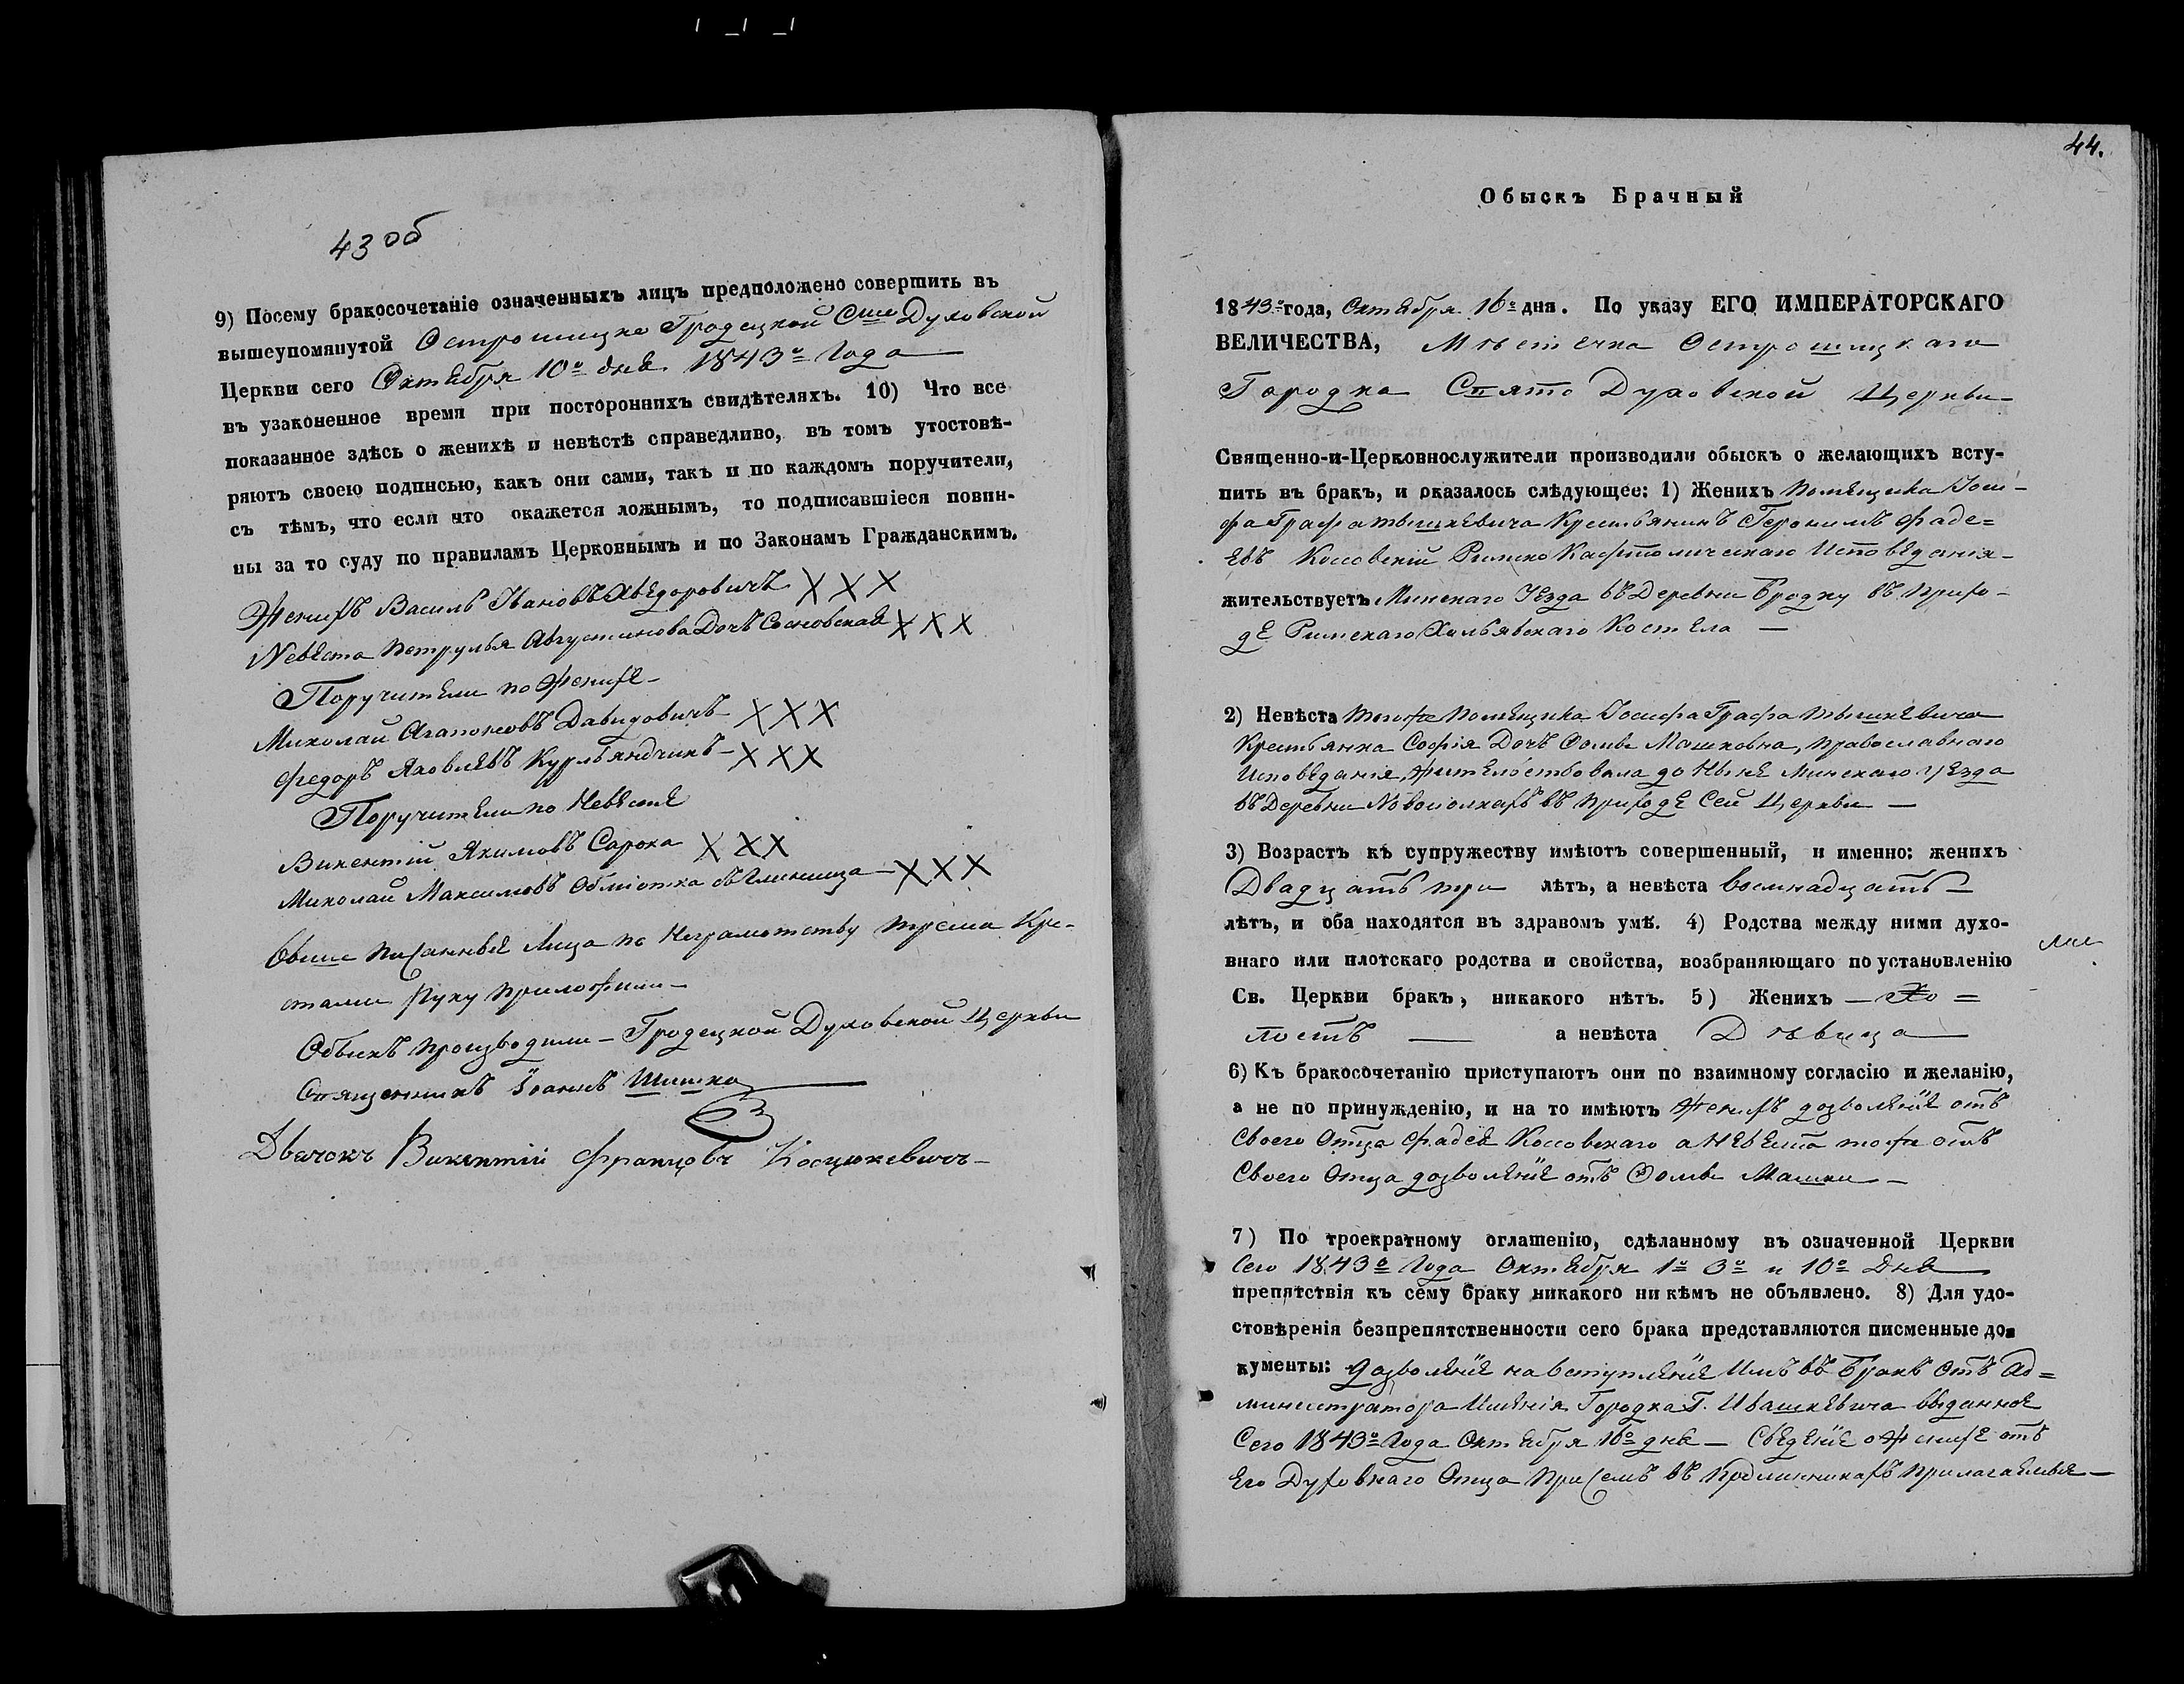 43 об
9) Посему бракосочетаніе означенныхъ лицъ предположено совершить въ
вышеупомянутой Острошицко Гродецкой Сто Духовской
Церкви сего Октября 10º дня 1843º Года
въ узаконенное время при постороннихъ свидѣтеляхъ. 10) Что все
показанное здѣсь о женихѣ и невѣстѣ справедливо, въ томъ утостовѣ-
ряютъ своею подписью, какъ они сами, такъ и по каждомъ поручители,
съ тѣмъ, что если что окажется ложнымъ, то подписавшіеся повин-
ны за то суду по правиламъ Церковнымъ и по Законамъ Гражданскимъ.
Женихъ Василь Ивановъ Хведоровичъ X X X
Невѣста Петрулья Августинова Дочъ Сосновская X X X
Поручители по Женихѣ
Миколай Агапоновъ Давидовичъ X X X
Федоръ Яковлевъ Курльяндчикъ X X X
Поручители по Невѣстѣ
Викентій Якимовъ Сарока X X X
Миколай Максимовъ X X X
Выше писанныя Лица по Неграмотству трема Кре-
стами Руку приложили
Обыскъ производили Гродецкой Духовской Церкви
Священникъ Іоаннъ Шишко
Дьячокъ Викентій Францовъ Косцюкевичъ
44.
Обыскъ Брачный
1843º года, Октября 16º дня. По указу ЕГО ИМПЕРАТОРСКАГО
ВЕЛИЧЕСТВА, Мѣстечка Острошицкаго
Городка Свято Духовской Церкви
Священно-и-Церковнослужители производили обыскъ о желающихъ всту-
пить въ бракъ, и оказалось слѣдующее: 1) Женихъ Помѣщика Іоси-
фа Графа Тышкевича Крестьянинъ Геронимъ Фаде=
евъ Коссовскій Римско Кафтолическаго Исповѣданія
жительствуетъ Минскаго Уѣзда въ Деревни Бродку въ прихо-
дѣ Римскаго Хильявскаго Костела
2) Невѣста тогоже Помѣщика Іосифа Графа Тышкевича
Крестьянка Софія Дочъ Фомы Машковна, православнаго
Исповѣданія, жительствовала до Нынѣ Минскаго уѣзда
въ Деревни Новоселкахъ въ приходѣ сей Церкви
3) Возрастъ къ супружеству имѣютъ совершенный, и именно: женихъ
Двадцать три лѣтъ, а невѣста восмнадцать
лѣтъ, и оба находятся въ здравомъ умѣ. 4) Родства между ними духо-
внаго или плотскаго родства и свойства, возбраняющаго по установленію
Св. Церкви бракъ, никакого нѣтъ. 5) Женихъ Хо =
лостъ а невѣста Дѣвица
6) Къ бракосочетанію приступаютъ они по взаимному согласію и желанію,
а не по принужденію, и на то имѣютъ Женихъ дозволеніе отъ
Своего Отца Фадея Коссовскаго а Невѣста тоже отъ
Своего Отца дозволеніе отъ Фомы Машки
7) По троекратному оглашенію, сдѣланному въ означенной Церкви
Сего 1843º Года Октября 1º 3º и 10º Дня
препятствія къ сему браку никакого ни кѣмъ не объявлено. 8) Для удо-
стовѣренія безпрепятственности сего брака представляются писменные до-
кументы: дозволеніе на вступленіе Имъ въ Бракъ Отъ Ад=
министратора Имѣнія Городка Г. Ивашкевича выданное
Сего 1843º Года Октября 16º дня Сведеніе о Женихѣ отъ
Его Духовнаго Отца при семъ въ подлинникахъ прилагаемыя